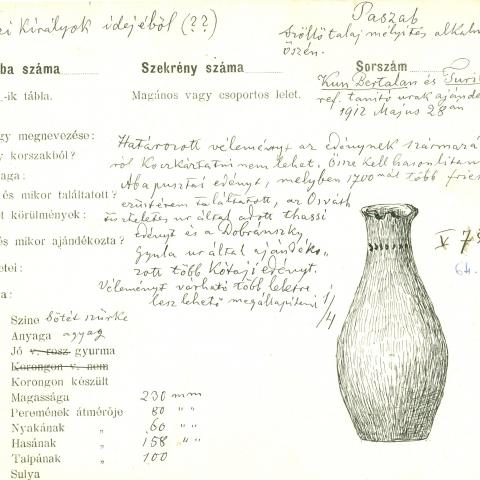 zi királyok idejéből (??)
Paszab
szőllő talaj mélyítés alkalm
őszén.
ba száma
Szekrény száma
Sorszám
-ik tábla.
Magános vagy csoportos lelet.
Kun Bertalan és Turi
ref. tanító urak ajánde
1912 Május 28 án
gy megnevezése:
y korszakból?
yaga:
és mikor találtatott?
et körülmények:
és mikor ajándékozta?
etei:
a:
Határozott véleményt az edénynek származá
ról koczkáztatni nem lehet. Össze kell hasonlítan
Abapusztai edényt, melyben 1700 nál több fries
ezüstérem találtatott, az Osváth
úr által adott thassi
edényt és a Dobránszky
Gyula úr által ajándéko-
zott több Kótaji edényt.
Véleményt várható több leletre
lesz lehető megállapítani
1/4
V 75
64.
Szine sötét szürke
Anyaga agyag
Jó v. rosz gyurma
Korongon v. nem
Korongon készült
Magassága 230 mm
Peremének átmérője 80 " "
Nyakának " 60 " "
Hasának " 158 " "
Talpának " 100
Sulya